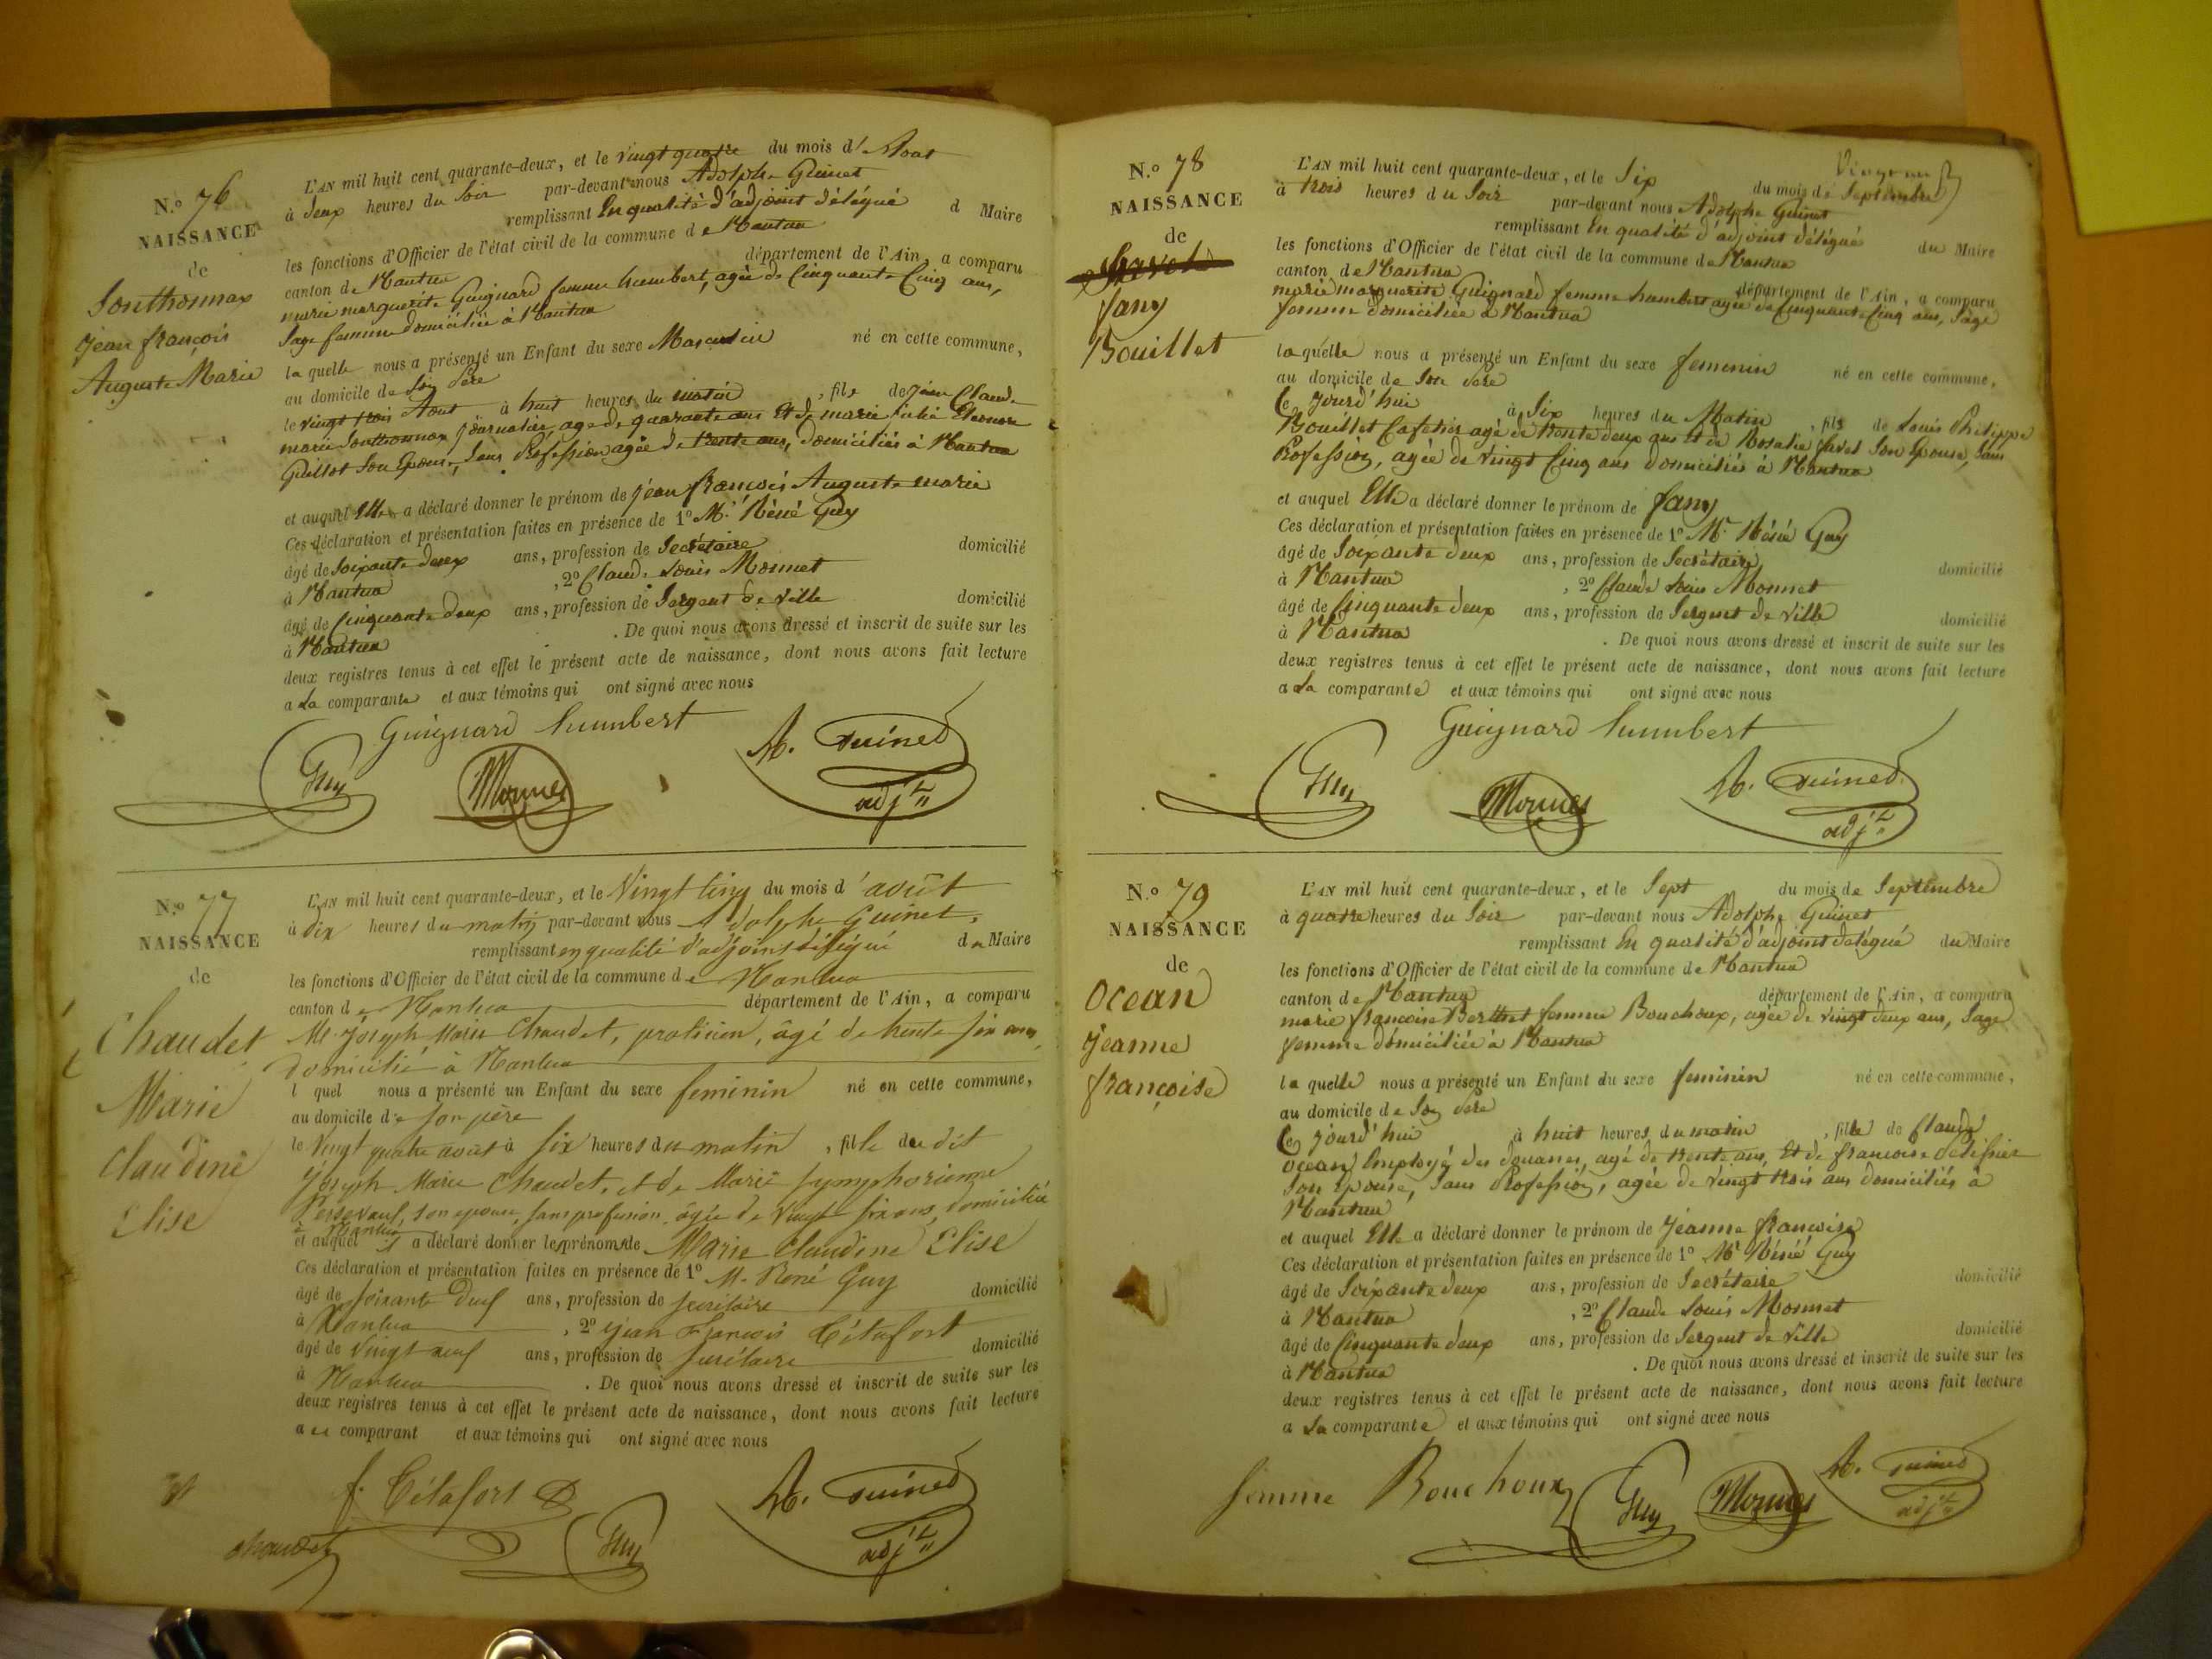 N.º 76
NAISSANCE
de
Sonthonnax
jean françois
Auguste Marie
L'AN mil huit cent quarante-deux, et le vingt quatre du mois d'Aout
à deux heures du Soir par-devant nous Adolphe Guinet
remplissant En qualité d'adjoint délégué d Maire
les fonctions d'Officier de l'état civil de la commune de Nantua
canton de Nantua département de l'Ain, a comparu
marie marguerite Guignard femme humbert, agée de Cinquante Cinq ans,
Sage femme domiciliée à Nantua
la quelle nous a présenté un Enfant du sexe Masculin né en cette commune,
au domicile de Son Père
le vingt trois Aout à huit heures du matin, fils de jean Claude
marie Sonthonnax journalier, agé de quarante ans Et de marie julie Eleonore
Guillot Son Epouse, Sans Profession agée de trente ans, domiciliés à Nantua
et auquel Elle a déclaré donner le prénom de jean françois Auguste marie
Ces déclaration et présentation faites en présence de 1º Mr. Réné Guy
âgé de Soixante deux ans, profession de Secrétaire domicilié
à Nantua, 2º Claude Louis Monnet
âgé de Cinquante deux ans, profession de Sergent de Ville domicilié
à Nantua. De quoi nous avons dressé et inscrit de suite sur les
deux registres tenus à cet effet le présent acte de naissance, dont nous avons fait lecture
a La comparante et aux témoins qui ont signé avec nous
Guignard humbert
Guy Monnet A. Guinet
adjt
N.º 77
NAISSANCE
de
Chaudet
Marie
Claudine
Elise
L'AN mil huit cent quarante-deux, et le Vingt Cinq du mois d'août
à dix heures du matin par-devant nous Adolphe Guinet,
remplissant en qualité d'adjoint délégué du Maire
les fonctions d'Officier de l'état civil de la commune de Nantua
canton de Nantua département de l'Ain, a comparu
Mr. Joseph Marie Chaudet, praticien, âgé de trente six ans,
domicilié à Nantua
l quel nous a présenté un Enfant du sexe feminin né en cette commune,
au domicile de son père
le Vingt quatre août à six heures du matin, fille du dit
Joseph Marie Chaudet, et de Marie Symphorienne
son epouse, sans profession, âgée de Vingt six ans, domiciliée
à Nantua
et auquel il a déclaré donner les prénoms de Marie Claudine Elise
Ces déclaration et présentation faites en présence de 1º M. René Guy
âgé de soixante deux ans, profession de secrétaire domicilié
à Nantua, 2º jean François Tétafort
âgé de Vingt neuf ans, profession de secrétaire domicilié
à Nantua. De quoi nous avons dressé et inscrit de suite sur les
deux registres tenus à cet effet le présent acte de naissance, dont nous avons fait lecture
a u comparant et aux témoins qui ont signé avec nous
f. Tétafort A. Guinet
Chaudet Guy adjt
Vingt un
N.º 78
NAISSANCE
de
fany
Bouillet
L'AN mil huit cent quarante-deux, et le Six du mois de Septembre
à trois heures du Soir par-devant nous Adolphe Guinet
remplissant En qualité d'adjoint délégué du Maire
les fonctions d'Officier de l'état civil de la commune de Nantua
canton de Nantua département de l'Ain, a comparu
marie marguerite Guignard femme humbert agée de Cinquante Cinq ans, Sage
femme domiciliée à Nantua
la quelle nous a présenté un Enfant du sexe femenin né en cette commune,
au domicile de Son Père
Ce jourd'hui à Six heures du Matin, fils de Louis Philippe
Bouillet Cafetier agé de trente deux ans et de Rosalie favet Son Epouse, Sans
Profession, agée de vingt Cinq ans domiciliés à Nantua
et auquel Elle a déclaré donner le prénom de fany
Ces déclaration et présentation faites en présence de 1º Mr Réné Guy
âgé de Soixante deux ans, profession de Secrétaire domicilié
à Nantua, 2º Claude Louis Monnet
âgé de Cinquante deux ans, profession de Sergent de Ville domicilié
à Nantua. De quoi nous avons dressé et inscrit de suite sur les
deux registres tenus à cet effet le présent acte de naissance, dont nous avons fait lecture
a La comparante et aux témoins qui ont signé avec nous
Guignard humbert
Guy Monnet A. Guinet
adjt
N.º 79
NAISSANCE
de
Ocean
jeanne
françoise
L'AN mil huit cent quarante-deux, et le Sept du mois de Septembre
à quatre heures du Soir par-devant nous Adolphe Guinet
remplissant En qualité d'adjoint délégué du Maire
les fonctions d'Officier de l'état civil de la commune de Nantua
canton de Nantua département de l'Ain, a comparu
marie françoise Berthet femme Bouchoux, agée de vingt deux ans, Sage
femme domiciliée à Nantua
la quelle nous a présenté un Enfant du sexe feminin né en cette commune,
au domicile de Son Père
Ce jourd'hui à huit heures du matin, fille de Claude
Ocean Employé des douanes, agé de trente ans, Et de francoise
Son epouse, Sans Profession, agée de vingt trois ans domiciliés à
Nantua
et auquel Elle a déclaré donner le prénom de jeanne françoise
Ces déclaration et présentation faites en présence de 1º Mr Réné Guy
âgé de Soixante deux ans, profession de Secrétaire domicilié
à Nantua, 2º Claude Louis Monnet
âgé de Cinquante deux ans, profession de Sergent de Ville domicilié
à Nantua. De quoi nous avons dressé et inscrit de suite sur les
deux registres tenus à cet effet le présent acte de naissance, dont nous avons fait lecture
a La comparante et aux témoins qui ont signé avec nous
femme Bouchoux Guy Monnet A. Guinet
adjt